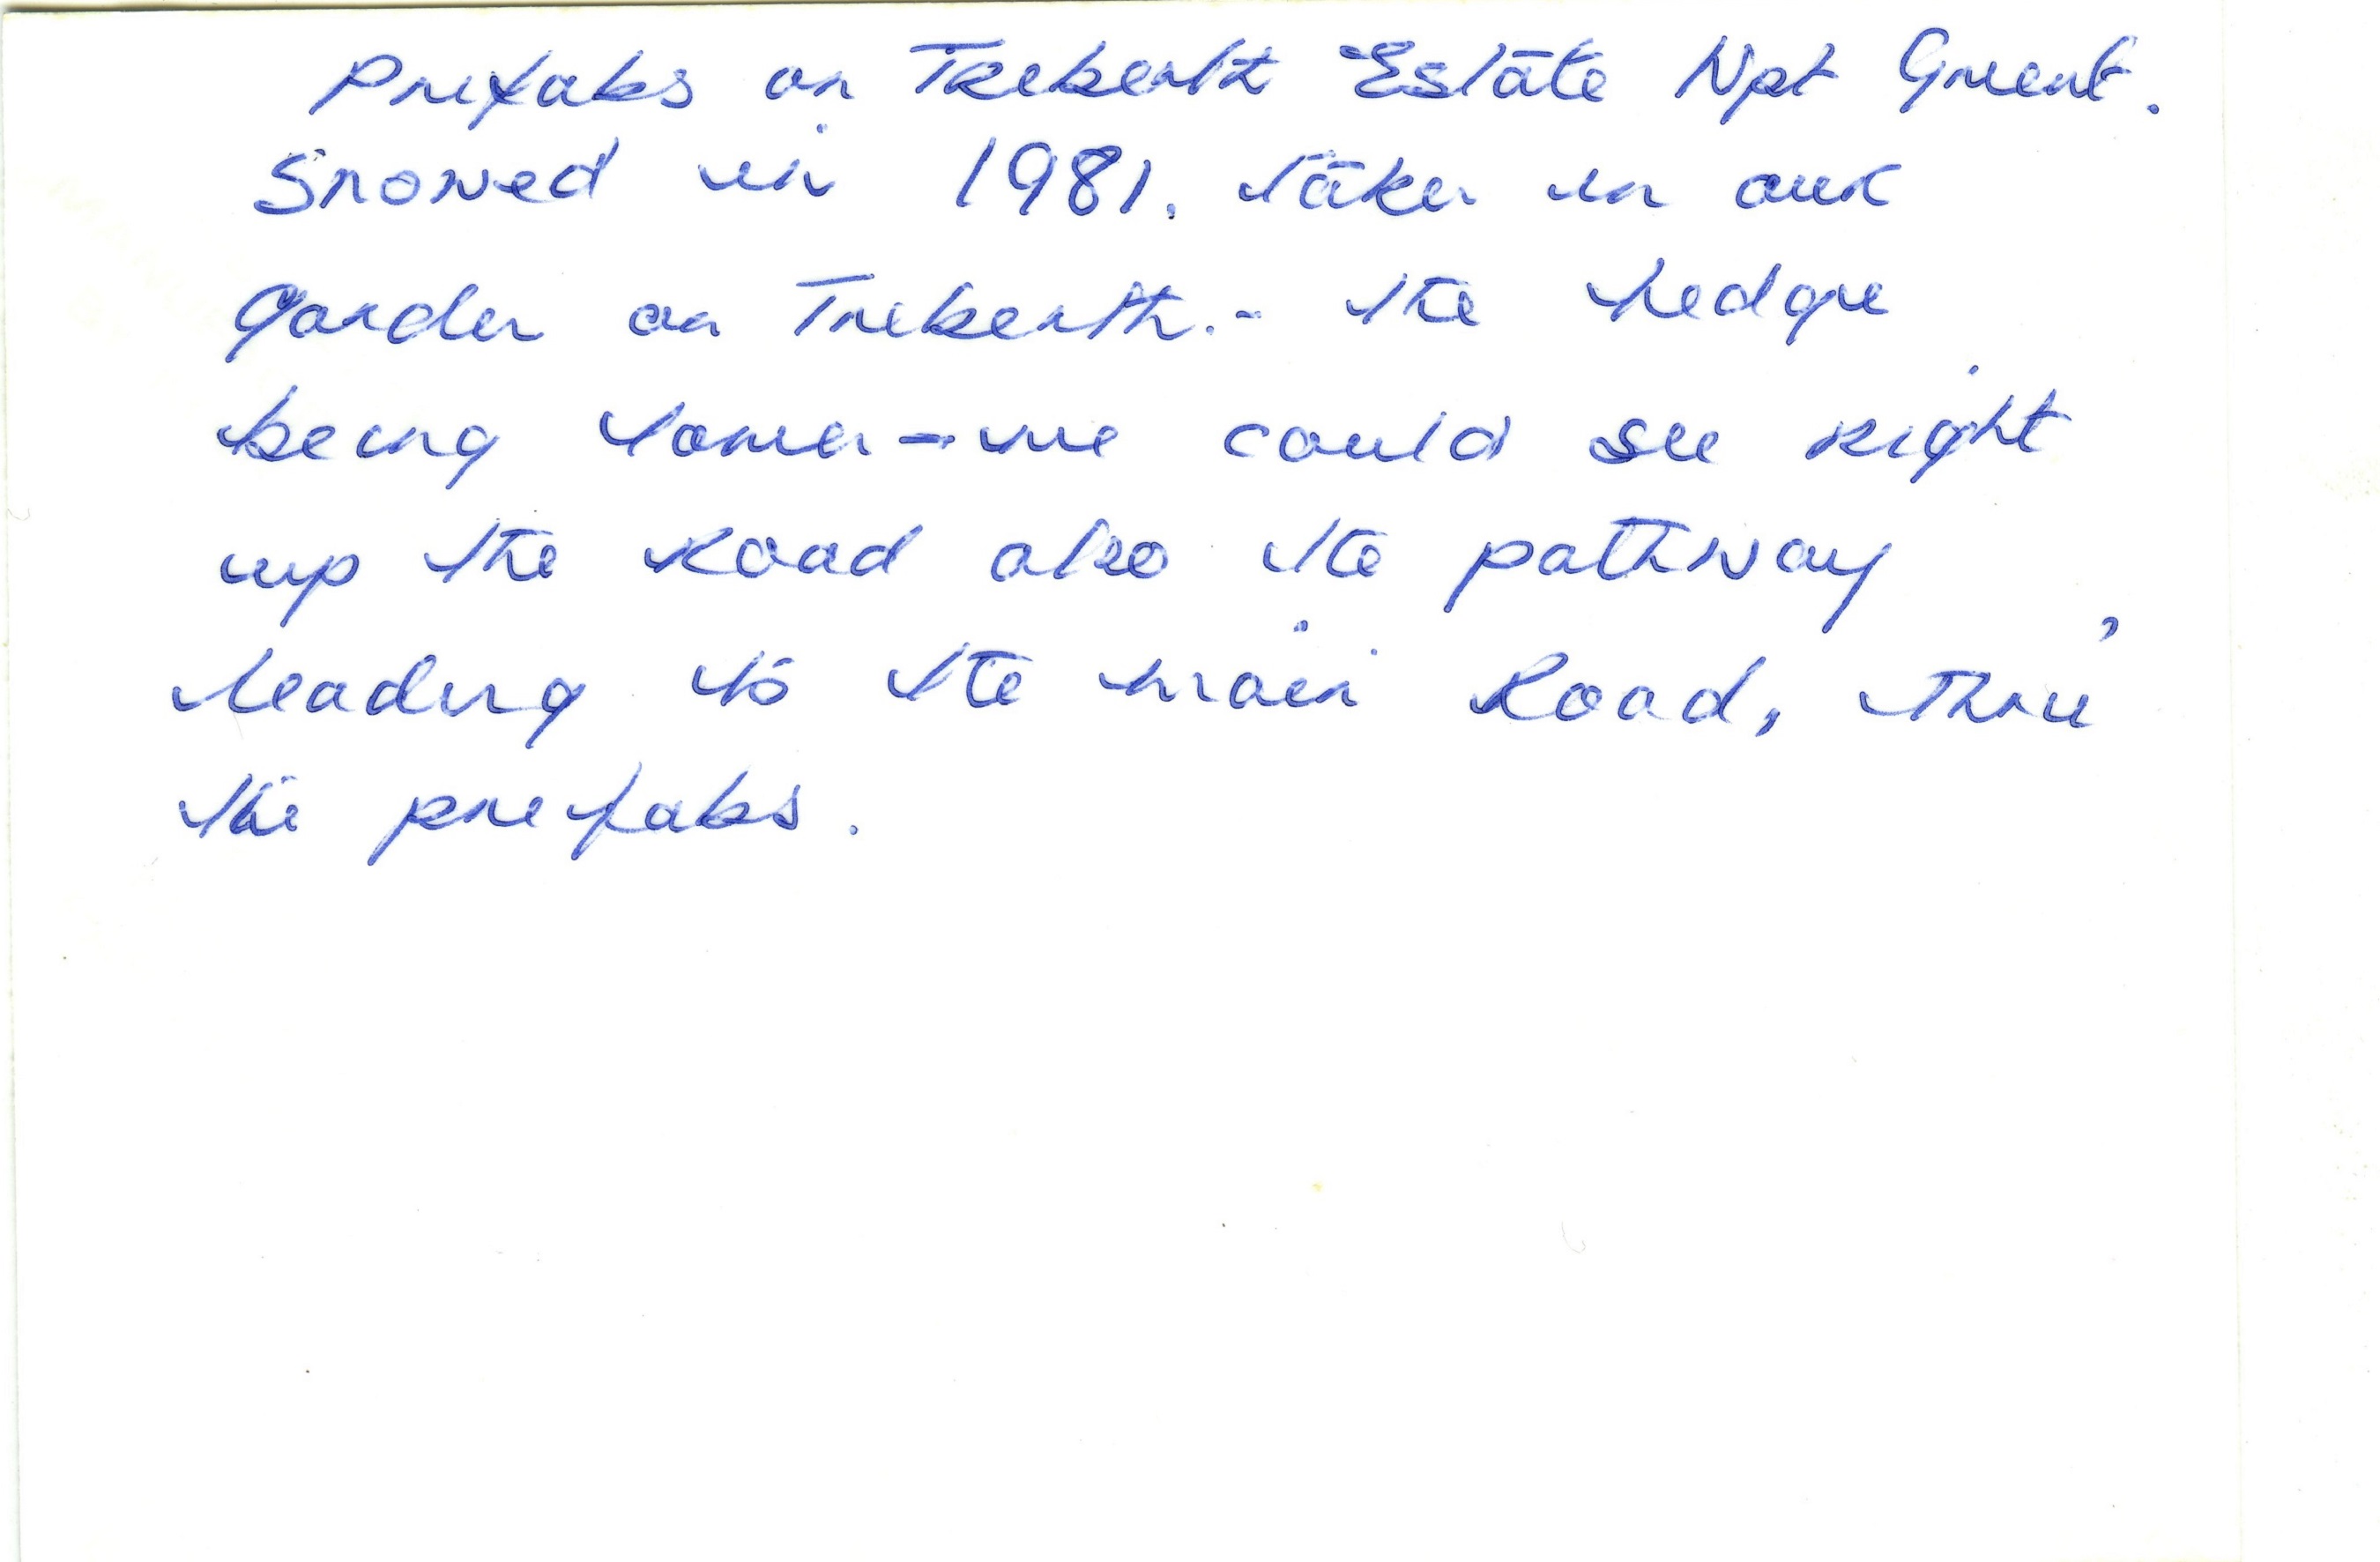 Prefabs on Treberth Estate Npt Gwent.
Snowed in 1981. taken in our
Garden on Treberth. - the hedge
being lower - we could see right
up the Road also the pathway
leading to the main Road, thru'
the prefabs.